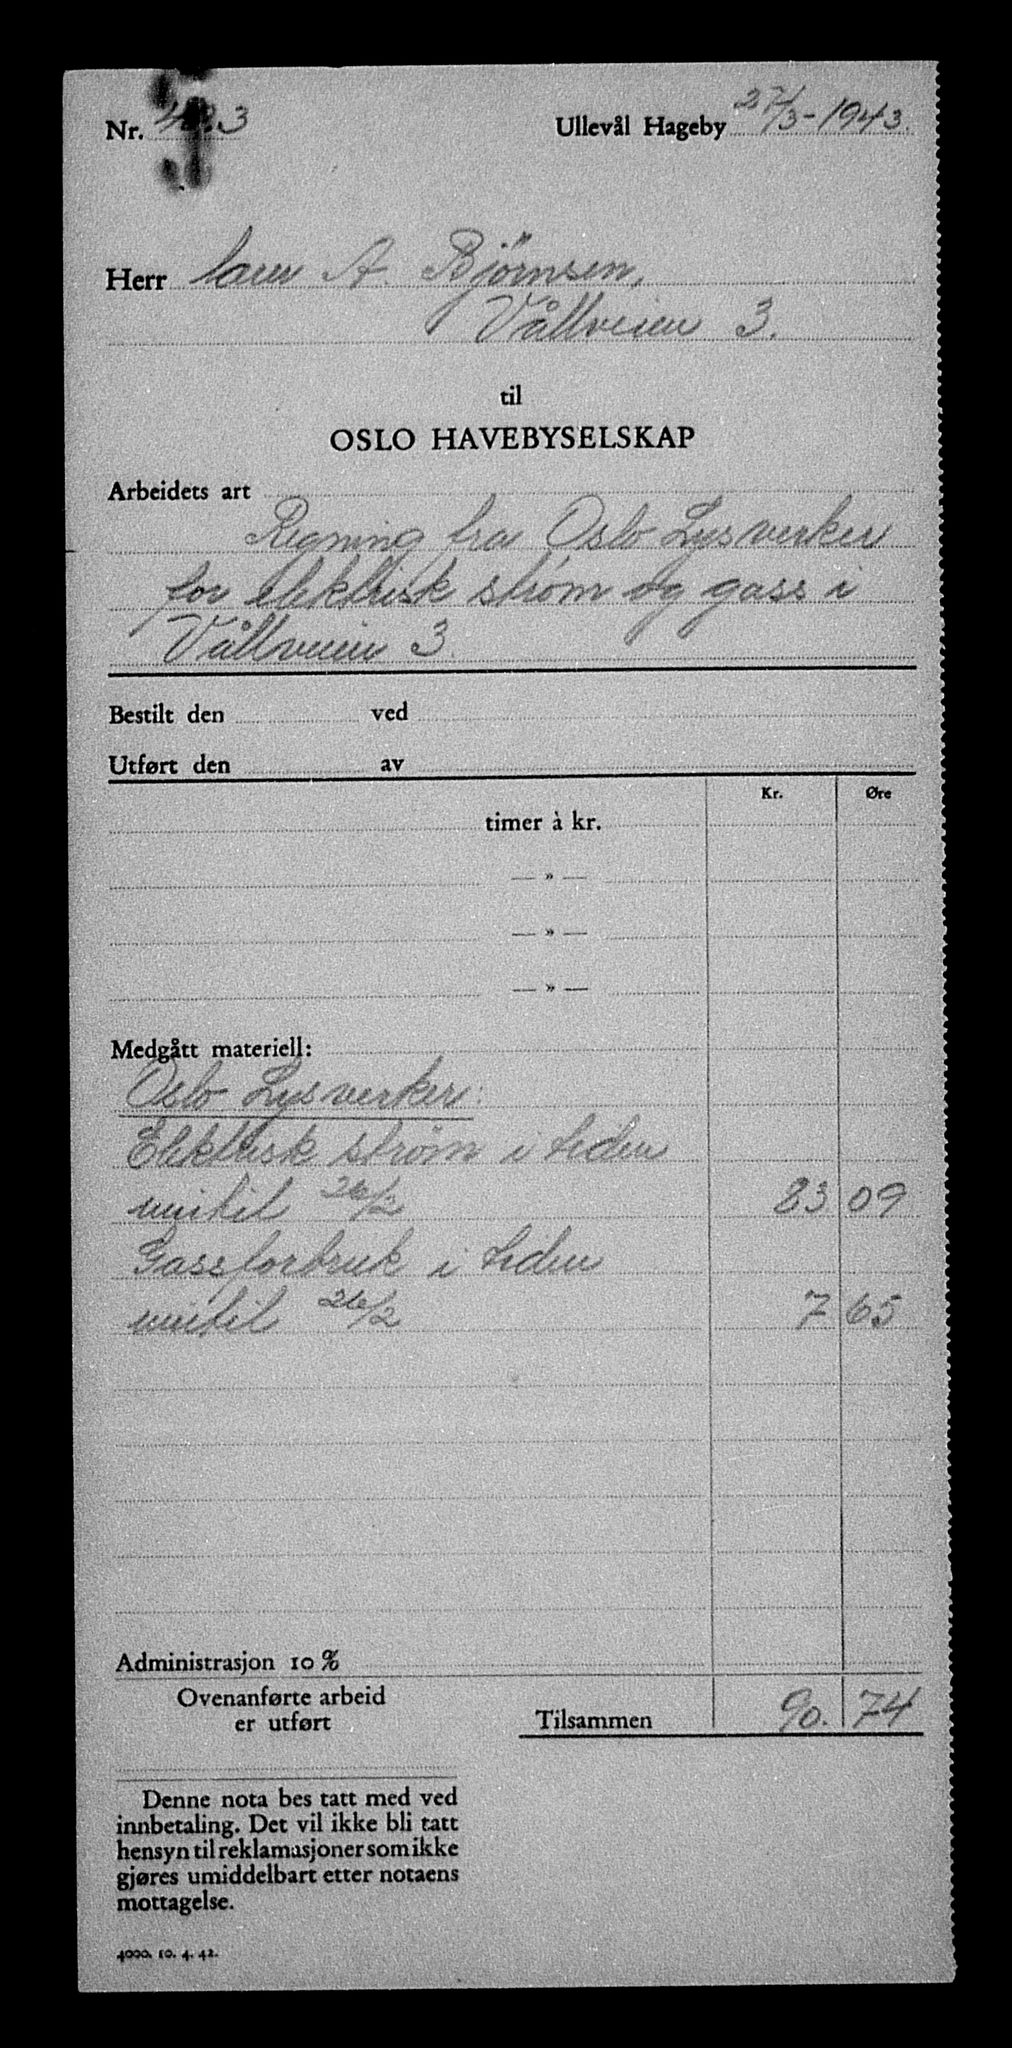 Nr. 3 Ullevål Hageby 27/3-1943.
Herr A. Bjørnsen,
Vållveien 3.
til
OSLO HAVEBYSELSKAP
Arbeidets art
Regning fra Oslo Lysverker
for elektrisk strøm og gass i
Vållveien 3.
Bestilt den ved
Utført den av
Kr. Øre
timer à kr.
— » —
— » —
— » —
Medgått materiell:
Oslo Lysverker:
Elektrisk strøm i tiden
inntil 26/2 83 09
Gassforbruk i tiden
inntil 26/2 7 65
Administrasjon 10 %
Ovenanførte arbeid
er utført
Tilsammen 90. 74
Denne nota bes tatt med ved
innbetaling. Det vil ikke bli tatt
hensyn til reklamasjoner som ikke
gjøres umiddelbart etter notaens
mottagelse.
4000. 10. 4. 42.